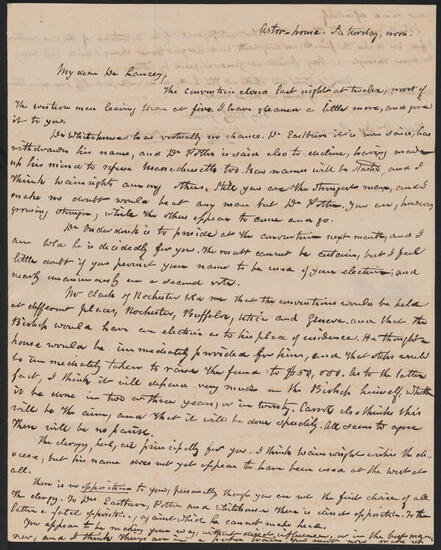 Astor-house. Saturday, noon.
My dear De Lancey,
The convention closed last night at twelve, most of
the western men leaving town at five. I have gleaned a little more, and give
it to you.
Dr Whitehouse has virtually no chance. Dr Eastburn it is now said, has
withdrawn his name, and Dr Potter is said also to decline, having made
up his mind to refuse Massachusetts too. New names will be started, and I
think Wainwright among them. Still you are the strongest man, and I
make no doubt would beat any man but Dr Potter. You are, however,
growing stronger, while the others appear to come and go.
Dr Onderdonk is to preside at the convention next month, and I
am told he is decidedly for you. The result cannot be certain, but I feel
little doubt if you permit your name to be used of your election; and
nearly unanimously on a second vote.
Mr Clark of Rochester told me that the conventions would be held
at different places, Rochester, Buffalo, Utica and Geneva, and that the
Bishop would have an election as to his place of residence. He thought a
house would be immediately provided for him, and that steps would
be immediately taken to raise the fund to $50,000. As to the latter
fact, I think it will depend very much on the Bishop himself, whether
it be done in two or three years, or in twenty. Carroll also thinks this
will be the aim, and that it will be done speedily. All seem to agree
there will be no pause.
The clergy, feel, are principally for you. I think Wainwright wishes the di-
ocese, but his name does not yet appear to have been used at the west at
all.
There is no opposition to you, personally though you are not the first choice of all
the clergy. To Drs Eastburn, Potter and Whitehouse there is direct opposition. To the
latter a fatal opposition, against which he cannot make head.
You appear to be making your way, without direct influences, in the best man-
ner, and I think things are in a proper train. You must not